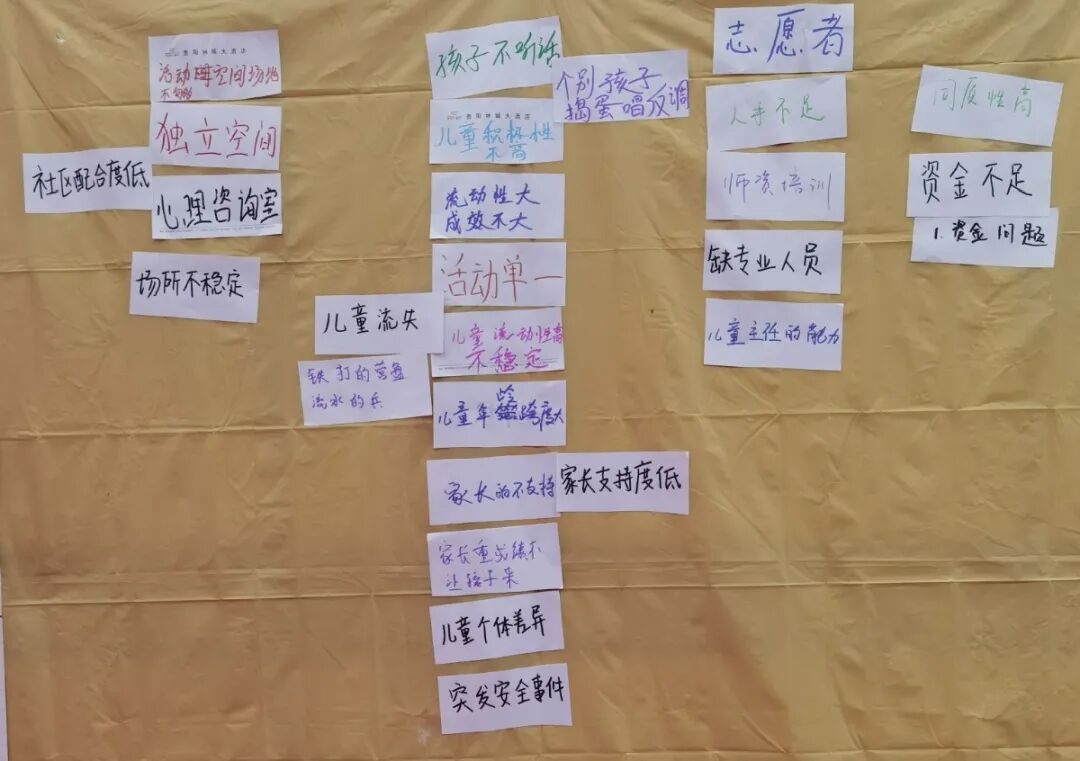 活动空间场地
不够
独立空间
社区配合度低
心理咨询室
场所不稳定
孩子不听话
个别孩子
捣蛋唱反调
儿童积极性
不高
流动性大
成效不大
活动单一
儿童流失
儿童流动性高
不稳定
铁打的营盘
流水的兵
儿童年龄跨度大
家长的不支持
家长支持度低
家长重成绩不
让孩子来
儿童个体差异
突发安全事件
志愿者
人手不足
师资培训
缺专业人员
儿童主任的能力
同质性高
资金不足
1.资金问题